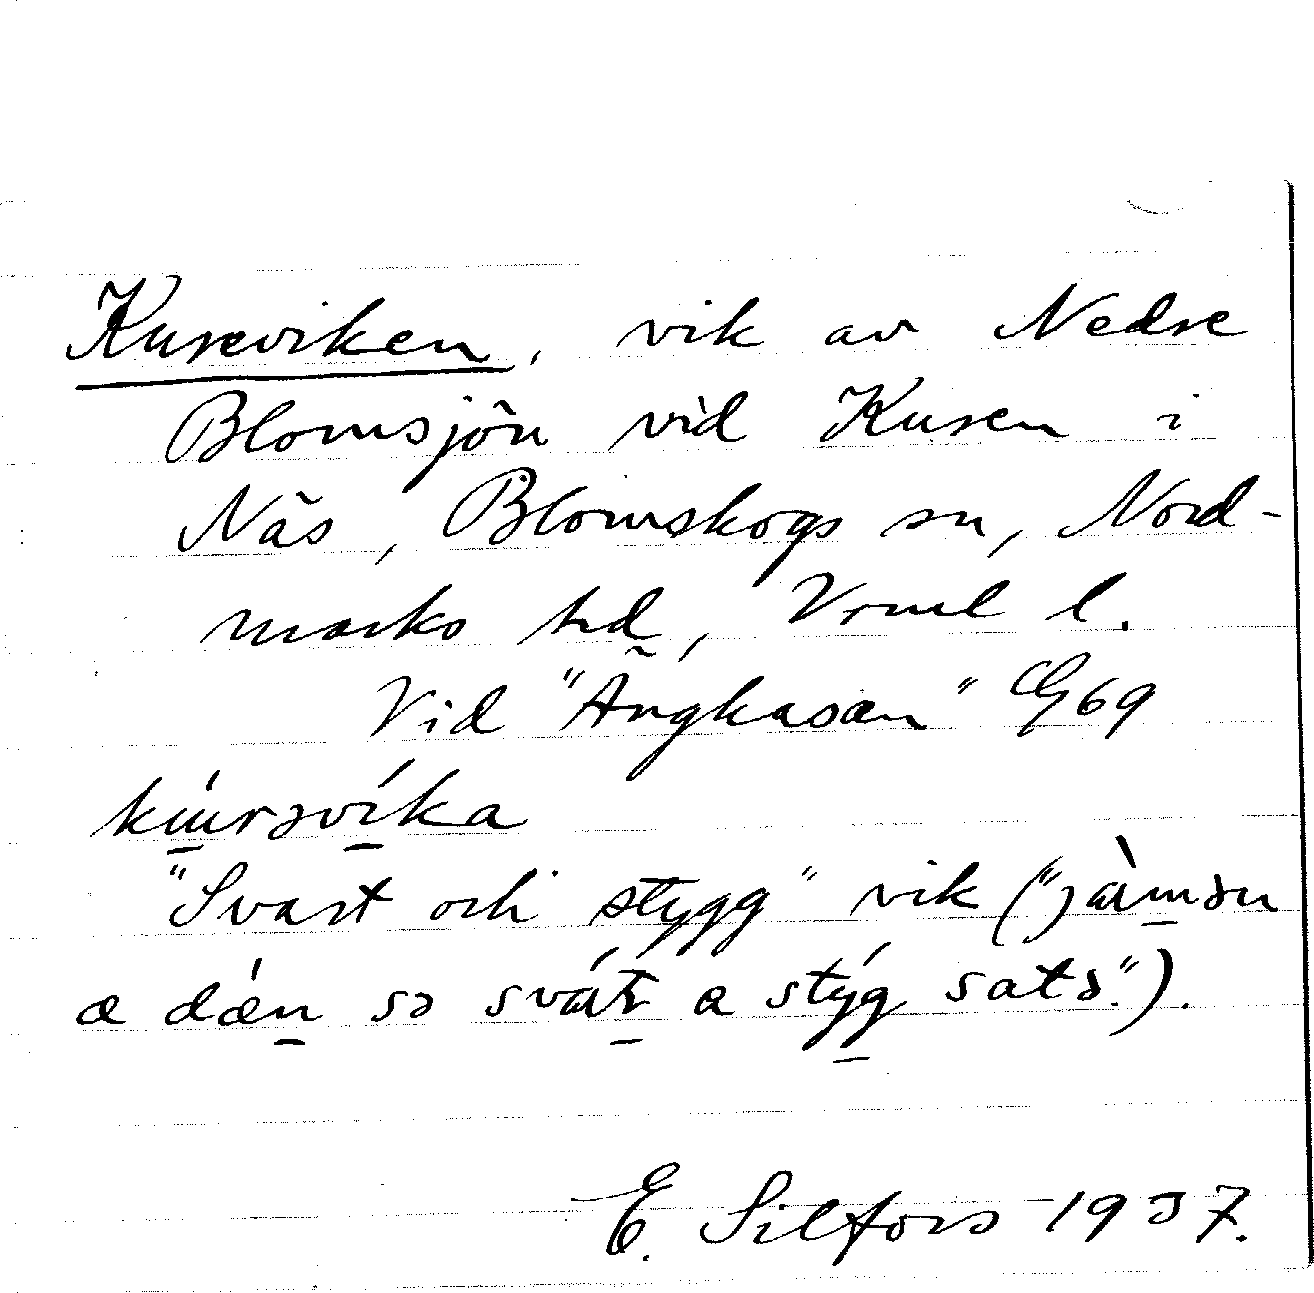 Kureviken, vik av Nedre
Blomsjön vid Kuren i
Näs, Blomskogs sn, Nord-
marks hd, Vrml l.
Vid "Ängkasan" CG69
ku̱rəvi̱ka
"Svart och stygg" vik ("
a so svát a stýg
E. Silfors 1937.